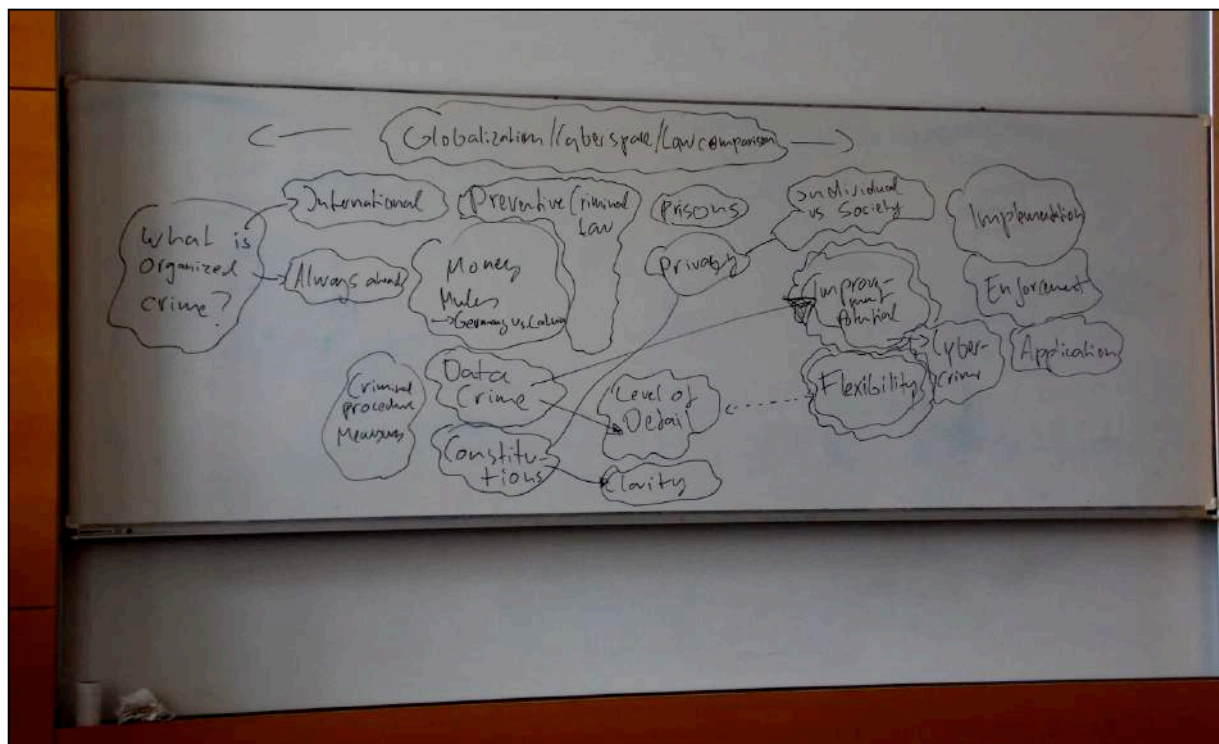 Globalization/Cyberspace/Law comparison
What is
organized
crime?
International
Always ahead
Preventive Criminal
Law
Money
Mules
→ Germany vs.
Prisons
Privacy
Individual
vs Society
Implementation
Enforcement
Application
Improve-
ment
Potential
Cyber-
Crime
Flexibility
Criminal
procedure
Measures
Data
Crime
Level of
Detail
Constitu-
tions
Clarity